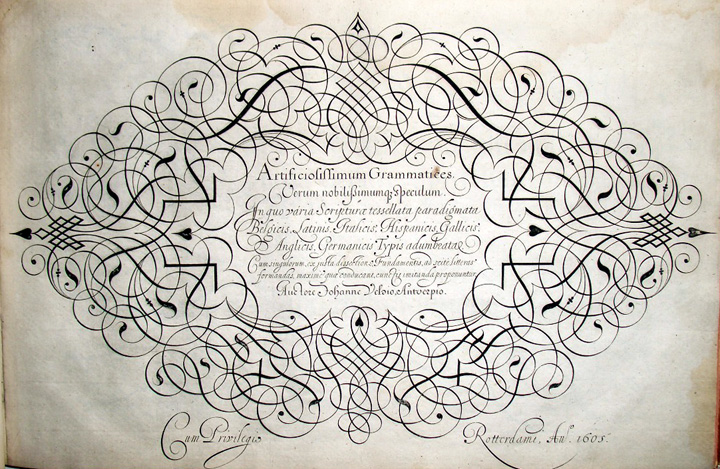 Artificiosissimum Grammatices.
Verum nobilissimumq; Speculum.
In quo varia Scripturæ tessellata paradigmata
Belgicis, Latinis, Italicis, Hispanicis, Gallicis,
Anglicis, Germanicis Typis adumbrata
Cum singulorum, ex justa dissectione Fundamentis, ad recte litteras
formandas, maxime que conducant, imitanda proponuntur
Auctore Johanne Antverpio.
Cum Privilegio
Rotterdami, An. 1605.